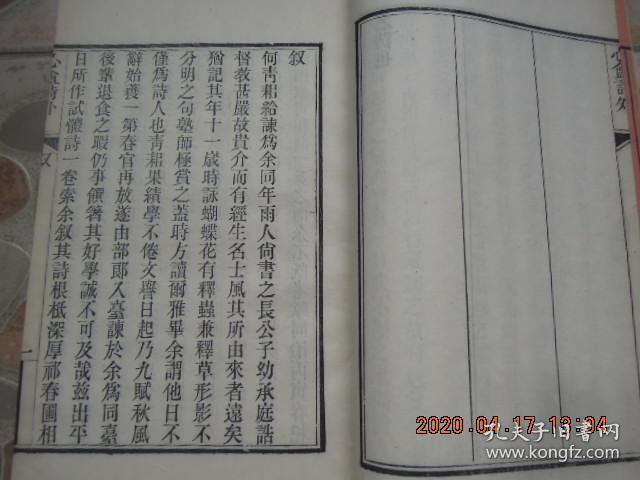 叙
何青耜給諫爲余同年雨人尙書之長公子幼承庭誥
督教甚嚴故貴介而有經生名士風其所由來者遠矣
猶記其年十一歲時詠蝴蝶花有釋蟲兼釋草形影不
分明之句塾師極賞之蓋時方讀爾雅畢余謂他日不
僅爲詩人也青耜果績學不倦文譽日起乃九賦秋風
辭始獲一第春官再放遂由部郞入臺諫於余爲同臺
後輩退食之暇仍事鉛箸其好學誠不可及哉茲出平
日所作試體詩一卷索余叙其詩根柢深厚祁春圃相
心盦詩外
叙
一
心盦詩外
2020.04.17 13:04
孔夫子旧書网
www.kongfz.com